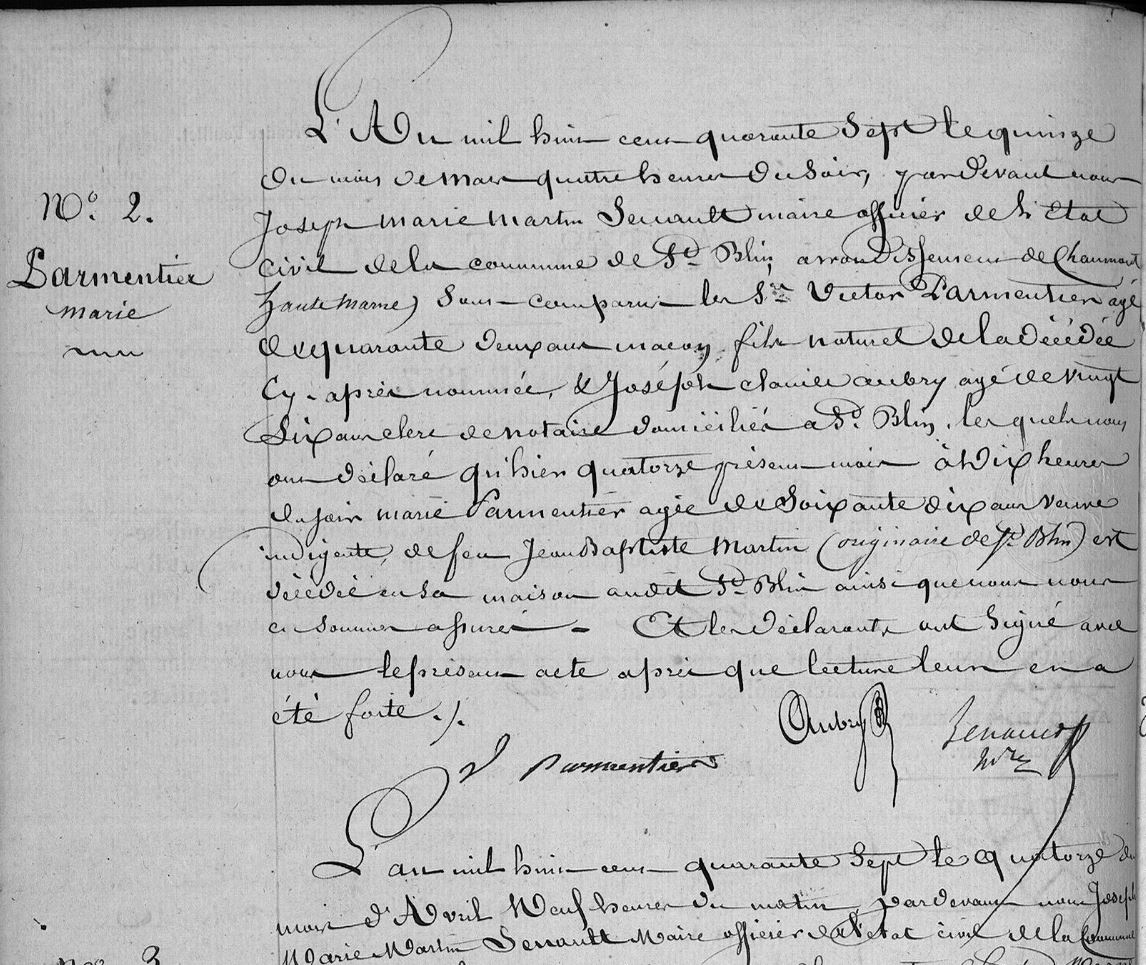 N.° 2.
Parmentier
marie
L'An mil huit cent quarante sept le quinze
du mois de mars quatre heures du soir, par devant nous
Joseph marie martin Senault maire officier de l'Etat
civil de la commune de St. Blin, arrondissement de Chaumont
haute marne) sont comparus les Srs Victor Parmentier agé
de quarante deux ans maçon, fils naturel de la décédée
Cy-après nommée, & Joséph aubry agé de vingt
Six ans clerc de notaire domiciliés a St. Blin, les quels nous
ont déclaré qu'hier quatorze présent mois à dix heures
du soir marie Parmentier agée de soixante dix ans veuve
indigente, de feu Jean Baptiste Martin (originaire de St. Blin) est
décédée en sa maison audit St. Blin ainsi que nous nous
en sommes assurés - Et les déclarants ont signé avec
nous le présent acte après que lecture leur en a
été faite ./.
Aubry
Senault
mre
V Parmentier
L'an mil huit cent quarante sept le quatorze du
mois d'Avril Neuf heures du matin, par devant nous Joseph
Marie Martin Senault Maire officier de l'etat civil de la Commune
N.° 3